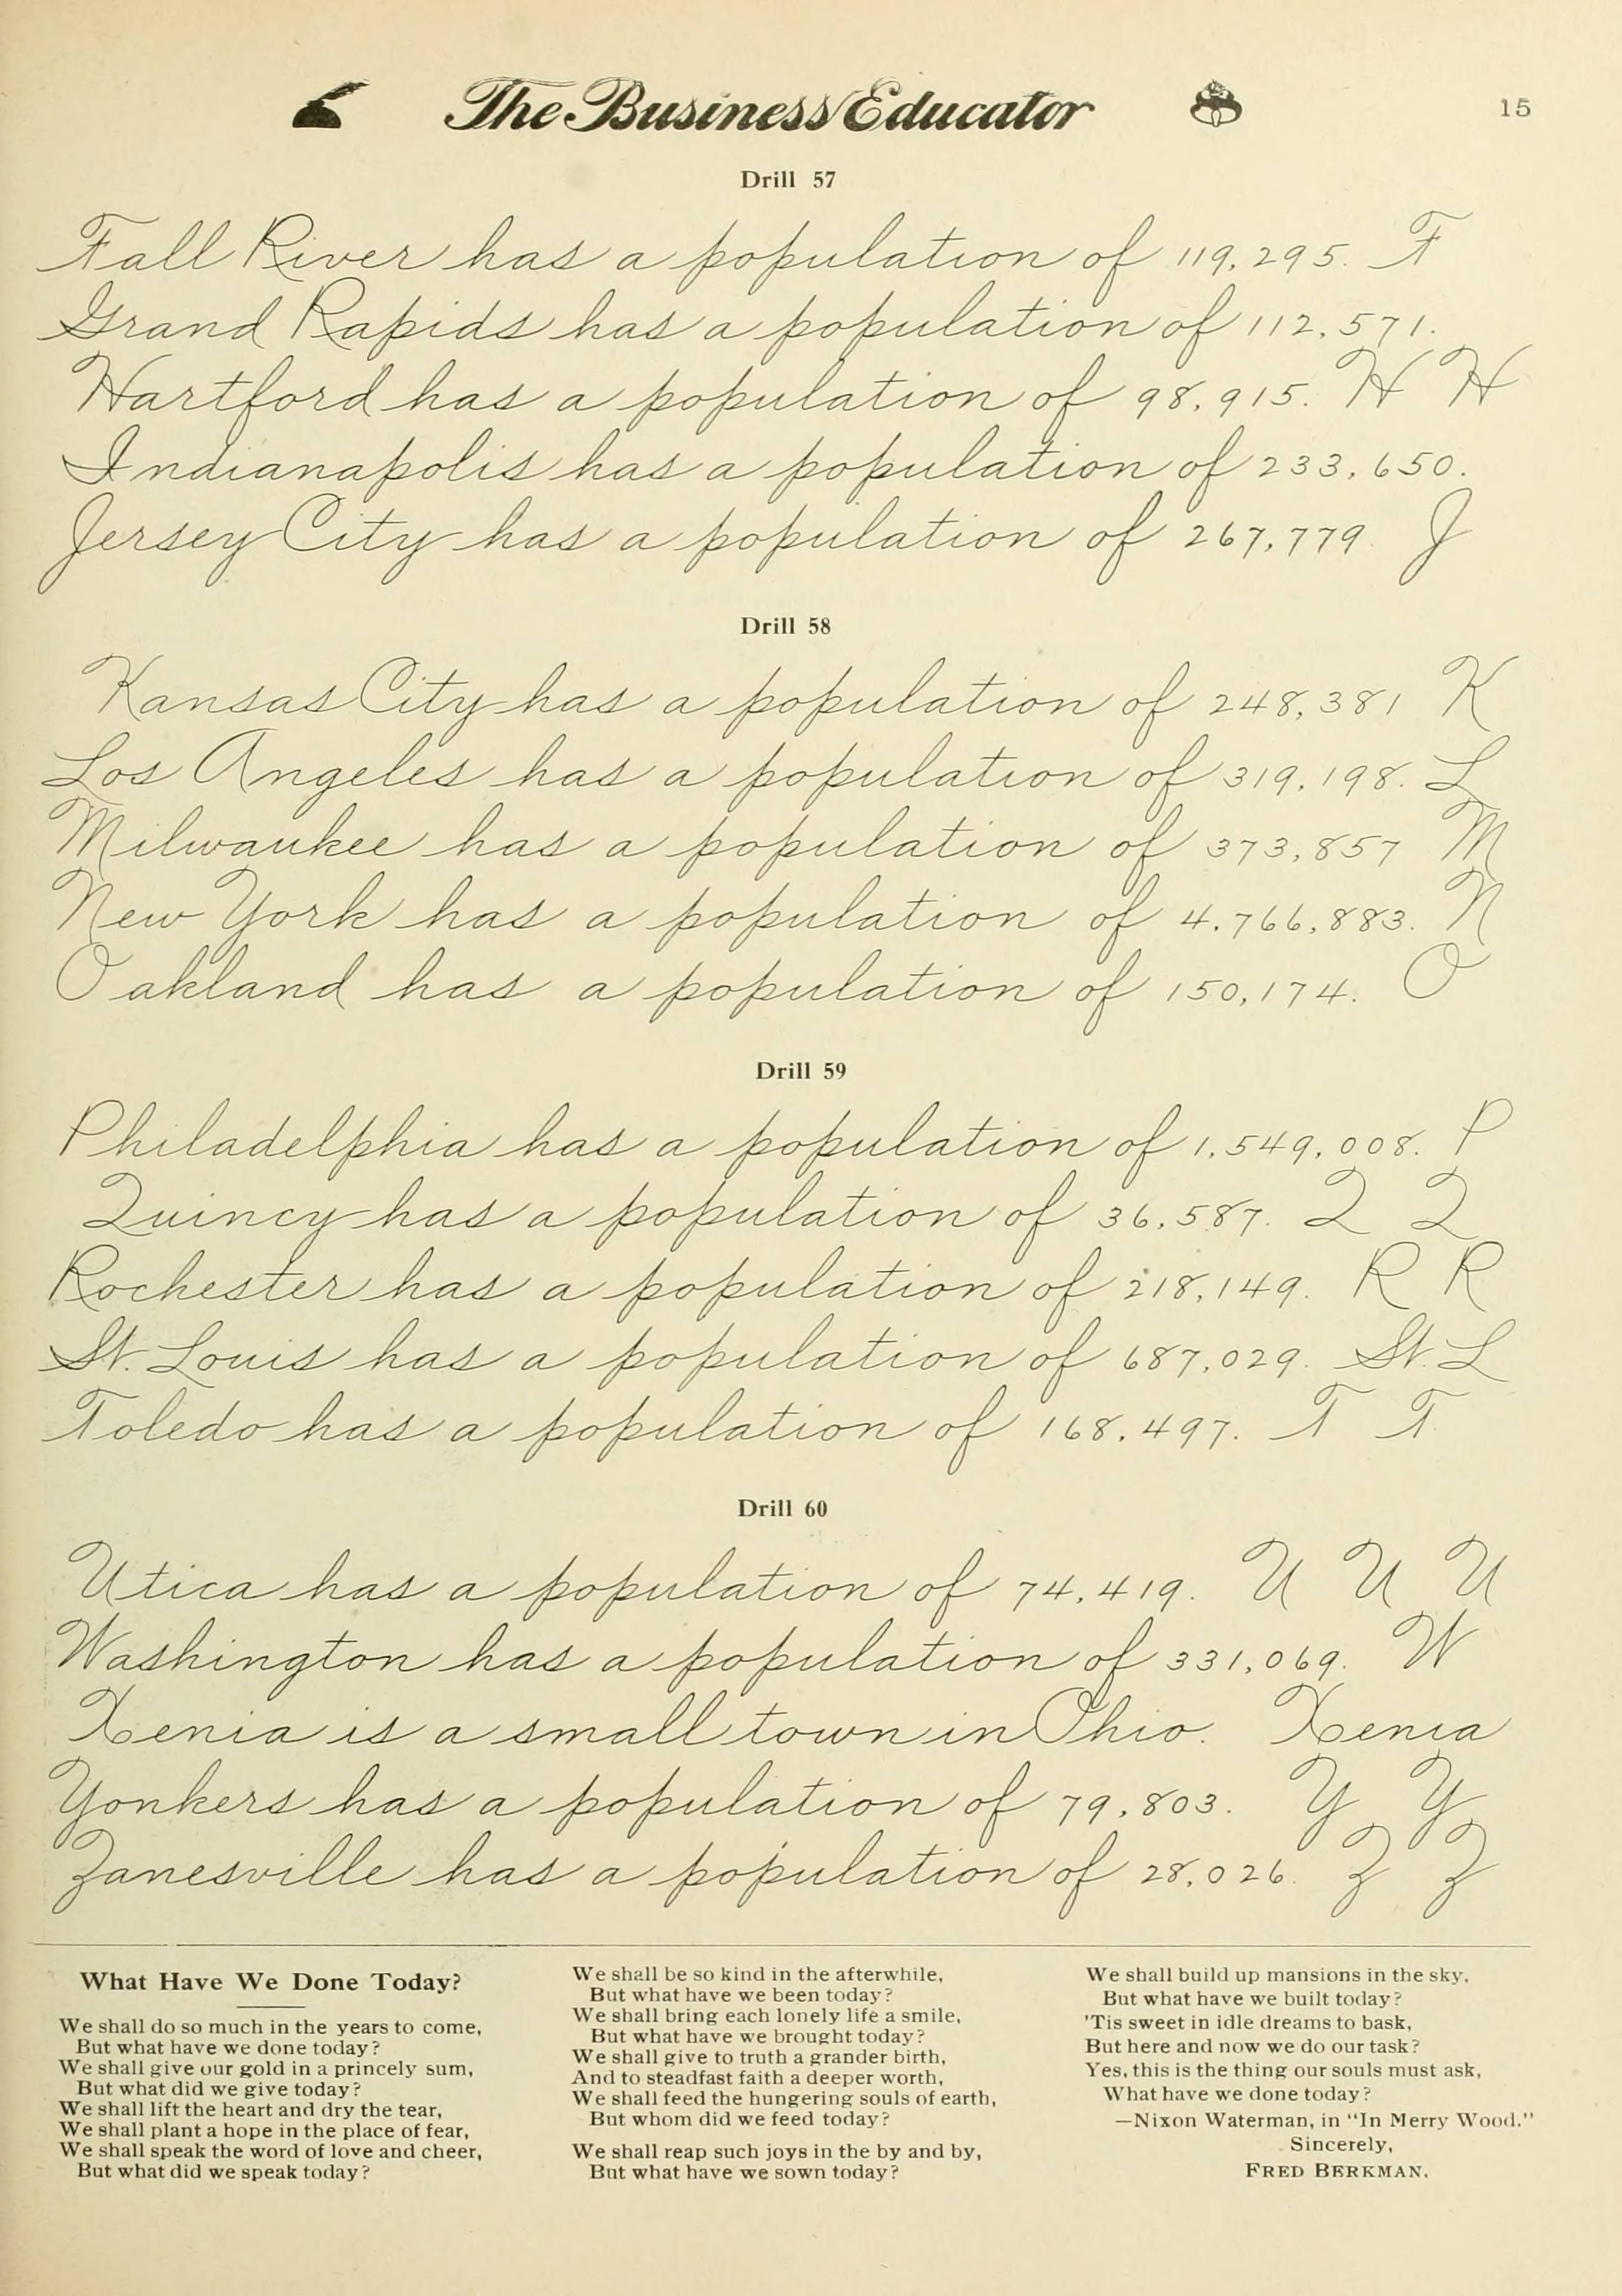 The Business Educator
15
Drill 57
Fall River has a population of 119,295. F
Grand Rapids has a population of 112,571.
Hartford has a population of 98,915. H H
Indianapolis has a population of 233,650.
Jersey City has a population of 267,779. J
Drill 58
Kansas City has a population of 248,381 K
Los Angeles has a population of 319,198. L
Milwaukee has a population of 373,857 M
New York has a population of 4,766,883. N
Oakland has a population of 150,174. O
Drill 59
Philadelphia has a population of 1,549,008. P
Quincy has a population of 36,587. Q Q
Rochester has a population of 218,149. R R
St. Louis has a population of 687,029. St. L
Toledo has a population of 168,497. T T
Drill 60
Utica has a population of 74,419. U U U
Washington has a population of 331,069. W
Xenia is a small town in Ohio. Xenia
Yonkers has a population of 79,803. Y Y
Zanesville has a population of 28,026. Z Z
What Have We Done Today?
We shall do so much in the years to come,
But what have we done today?
We shall give our gold in a princely sum,
But what did we give today?
We shall lift the heart and dry the tear,
We shall plant a hope in the place of fear,
We shall speak the word of love and cheer,
But what did we speak today?
We shall be so kind in the afterwhile,
But what have we been today?
We shall bring each lonely life a smile,
But what have we brought today?
We shall give to truth a grander birth,
And to steadfast faith a deeper worth,
We shall feed the hungering souls of earth,
But whom did we feed today?
We shall reap such joys in the by and by,
But what have we sown today?
We shall build up mansions in the sky,
But what have we built today?
'Tis sweet in idle dreams to bask,
But here and now we do our task?
Yes, this is the thing our souls must ask,
What have we done today?
—Nixon Waterman, in "In Merry Wood."
Sincerely,
FRED BERKMAN.